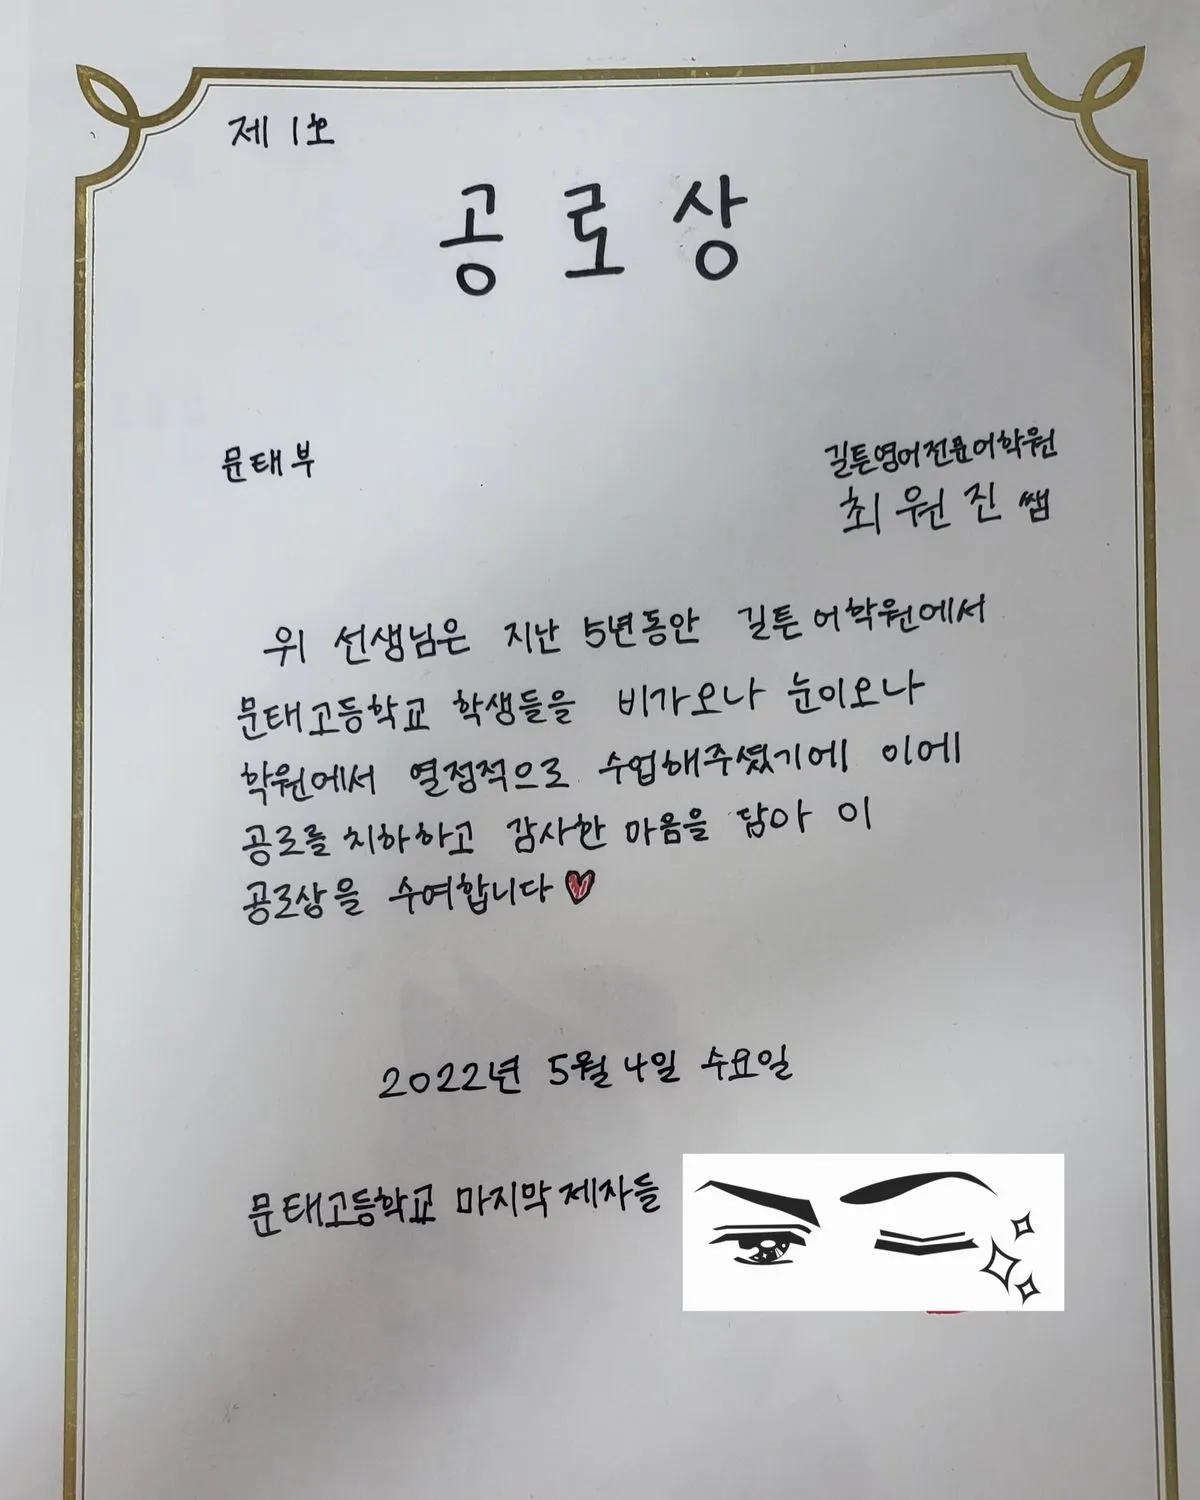 제 1호
공로상
문태부
길튼영어전문어학원
최원진 쌤
위 선생님은 지난 5년동안 길튼 어학원에서
문태고등학교 학생들을 비가오나 눈이오나
학원에서 열정적으로 수업해주셨기에 이에
공로를 치하하고 감사한 마음을 담아 이
공로상을 수여합니다
2022년 5월 4일 수요일
문태고등학교 마지막 제자들